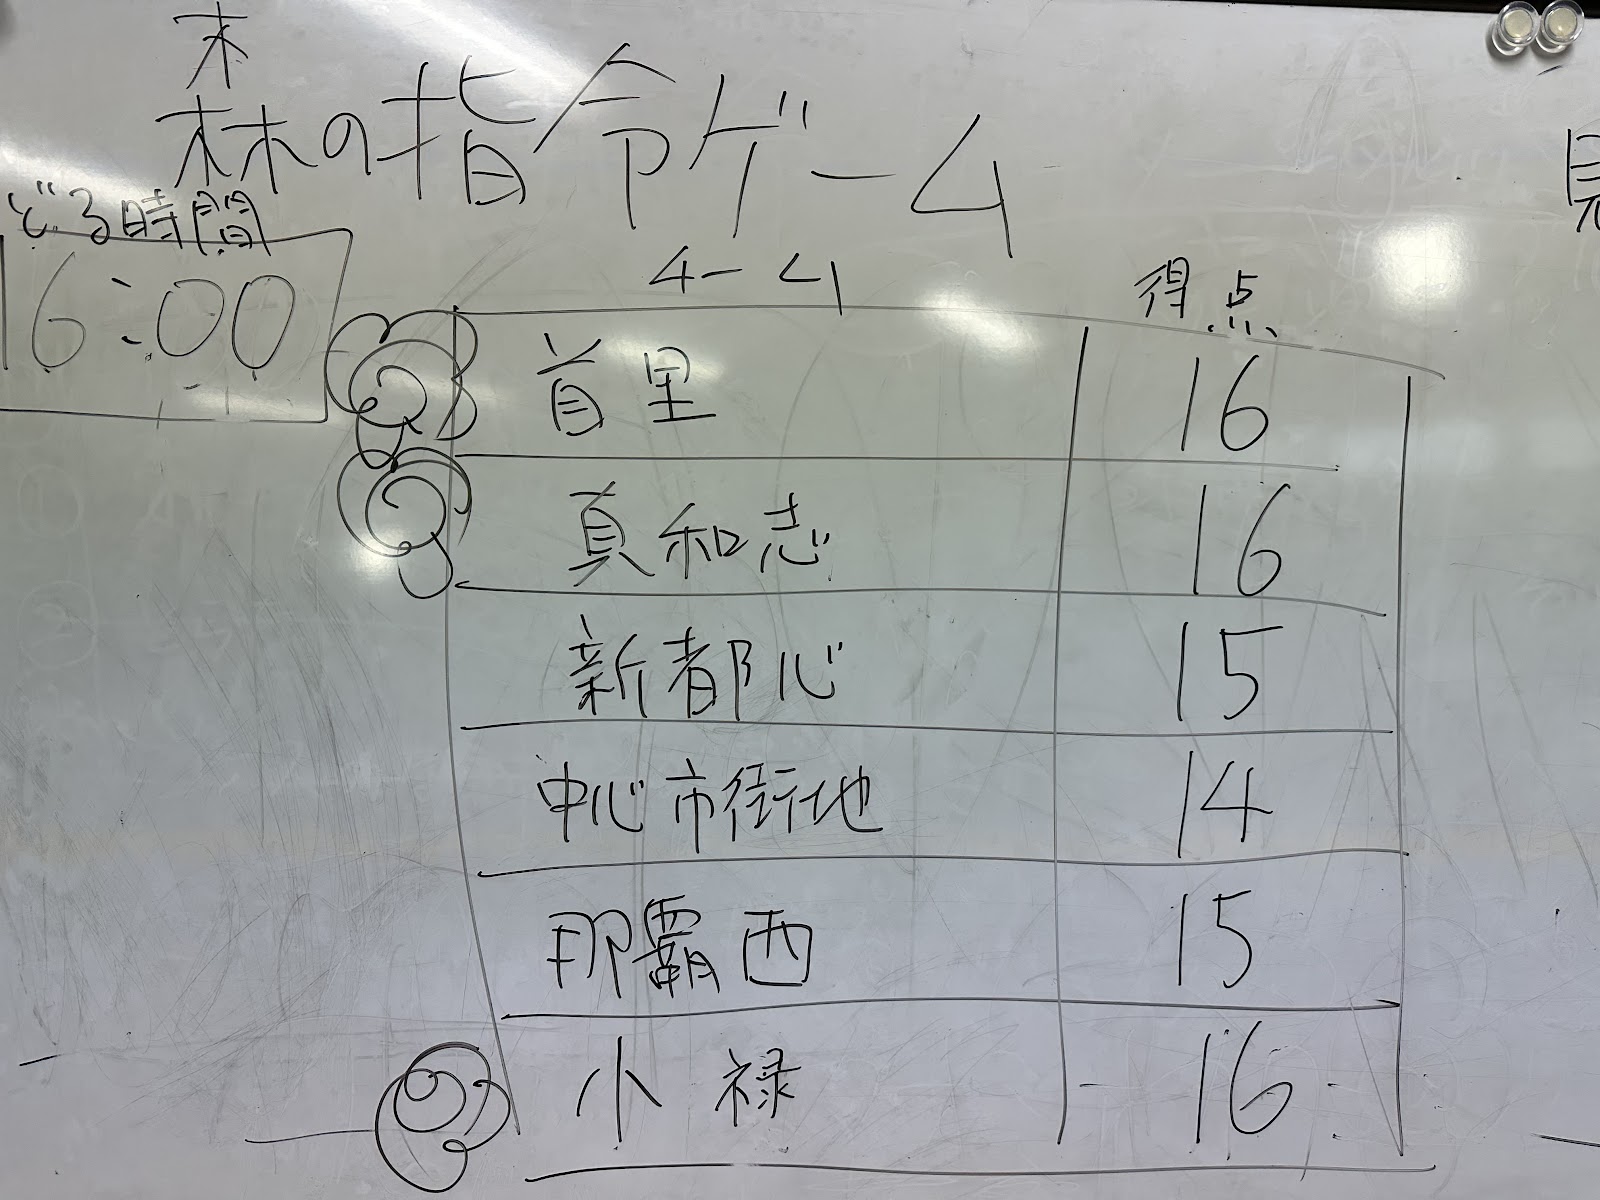 森の指令ゲーム
どる時間
16:00
チーム
得点
首里 16
真和志 16
新都心 15
中心市街地 14
那覇西 15
小禄 16